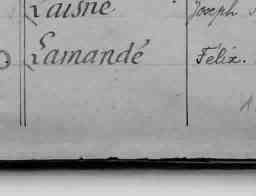 Laisné Joseph
Lamandé Félix.